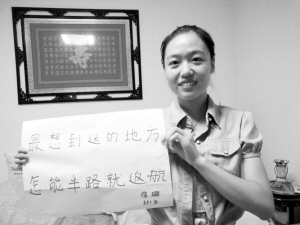 最想到达的地方
怎能半路就返航